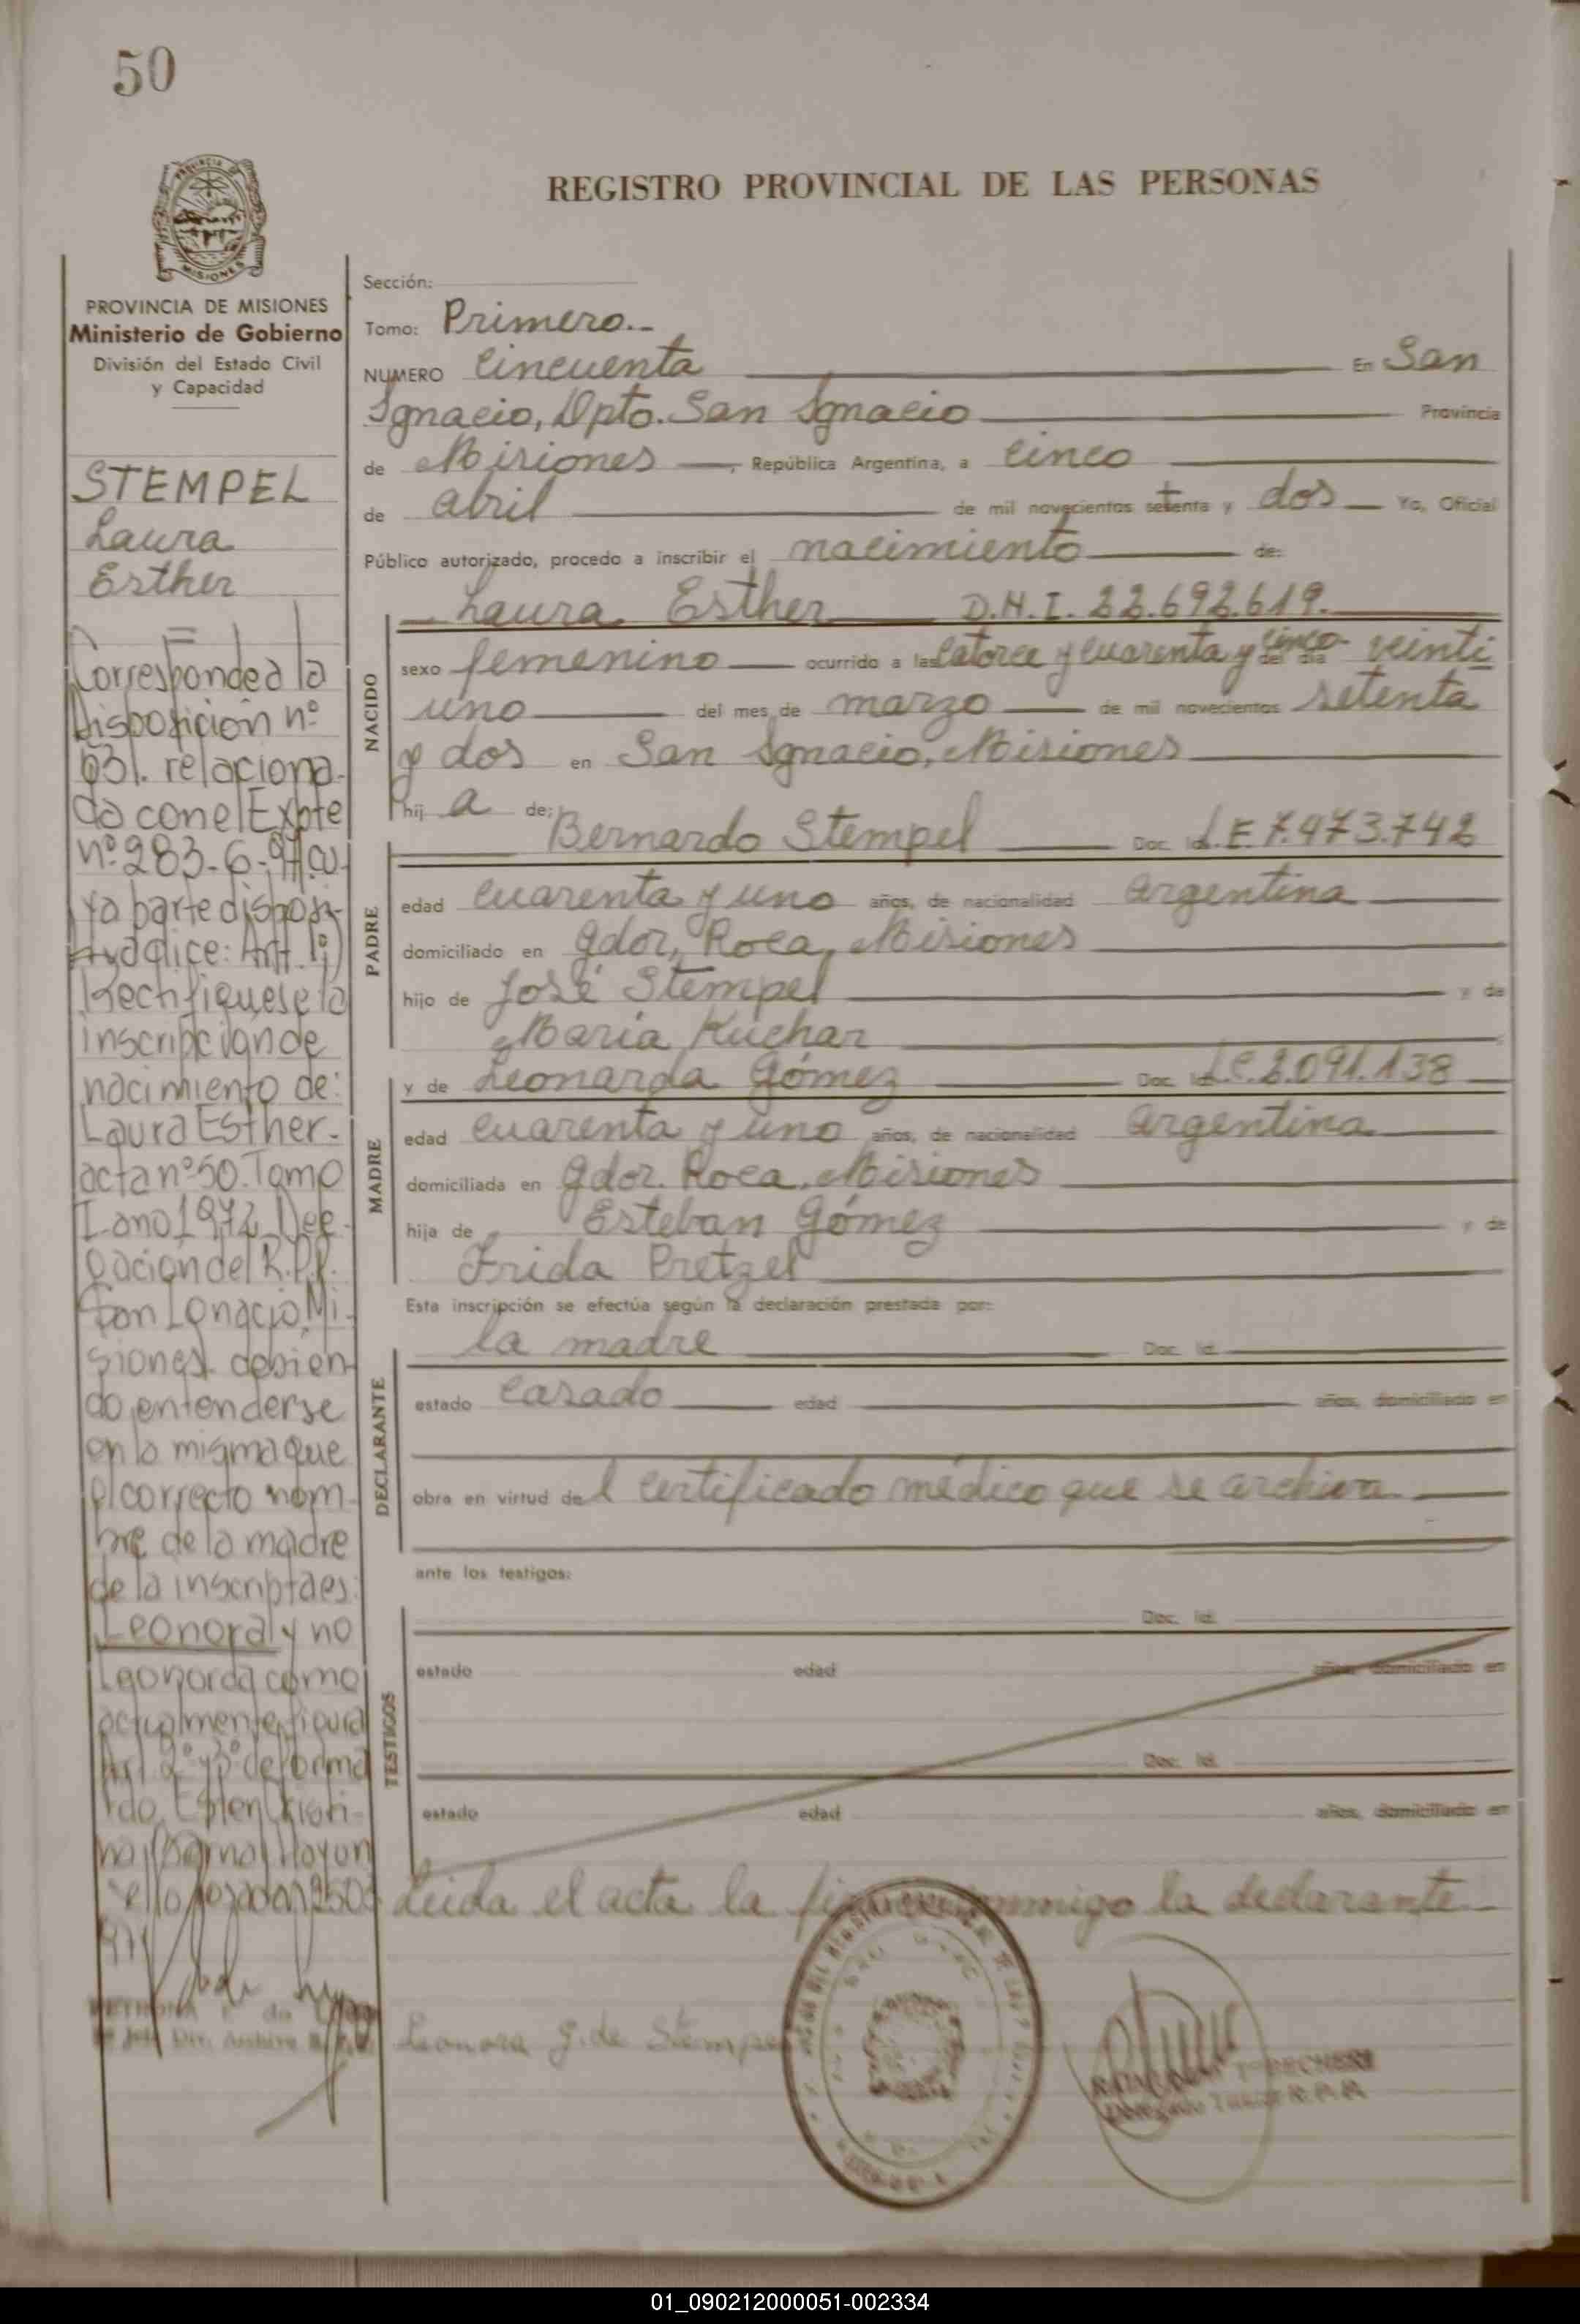 50
PROVINCIA
MISIONES
PROVINCIA DE MISIONES
Ministerio de Gobierno
División del Estado Civil
y Capacidad
STEMPEL
Laura
Esther
=
Corresponde a la
Disposición nº
631. relaciona-
da con el Expte
nº 283-6-91. cu-
ya parte disposi-
tiva dice: Art. 1º)
Rectifiquese la
inscripcion de
nacimiento de:
Laura Esther-
acta nº 50. Tomo
I-ano 1972. Dele-
gacion del R.P.P.
San Ignacio, Mi-
siones. debien-
do entenderse
en la misma que
el correcto nom-
bre de la madre
de la inscripta es:
Leonora y no
Leonarda como
actualmente figura
Art. 2º y 3º de forma
REGISTRO PROVINCIAL DE LAS PERSONAS
Sección:
Tomo: Primero.-
NUMERO Cincuenta En San
Ignacio, Dpto. San Ignacio Provincia
de Misiones, República Argentina, a cinco
de abril de mil novecientos setenta y dos Yo, Oficial
Público autorizado, procedo a inscribir el nacimiento de:
Laura Esther D.N.I. 22.692.619.
NACIDO
sexo femenino ocurrido a las catorce y cuarenta y cinco del día veinti
uno del mes de marzo de mil novecientos setenta
y dos en San Ignacio, Misiones
hij a de:
Bernardo Stempel Doc. Id. L.E. 7.473.742
PADRE
edad cuarenta y uno años, de nacionalidad argentina
domiciliado en Gdor. Roca, Misiones
hijo de José Stempel y de
María Kuchar
y de Leonarda Gómez Doc. Id. L.C. 2.091.138
MADRE
edad cuarenta y uno años, de nacionalidad argentina
domiciliada en Gdor. Roca, Misiones
hija de Esteban Gómez y de
Frida Pretzel
Esta inscripción se efectúa según la declaración prestada por:
la madre Doc. Id.
DECLARANTE
estado casado edad años, domiciliado en
obra en virtud de l certificado médico que se archiva
ante los testigos:
Doc. Id.
TESTIGOS
estado edad años, domiciliado en
Doc. Id.
estado edad años, domiciliado en
Leida el acta la conmigo la declarante
Leonora G. de Stempel
R.P.P.
01_090212000051-002334